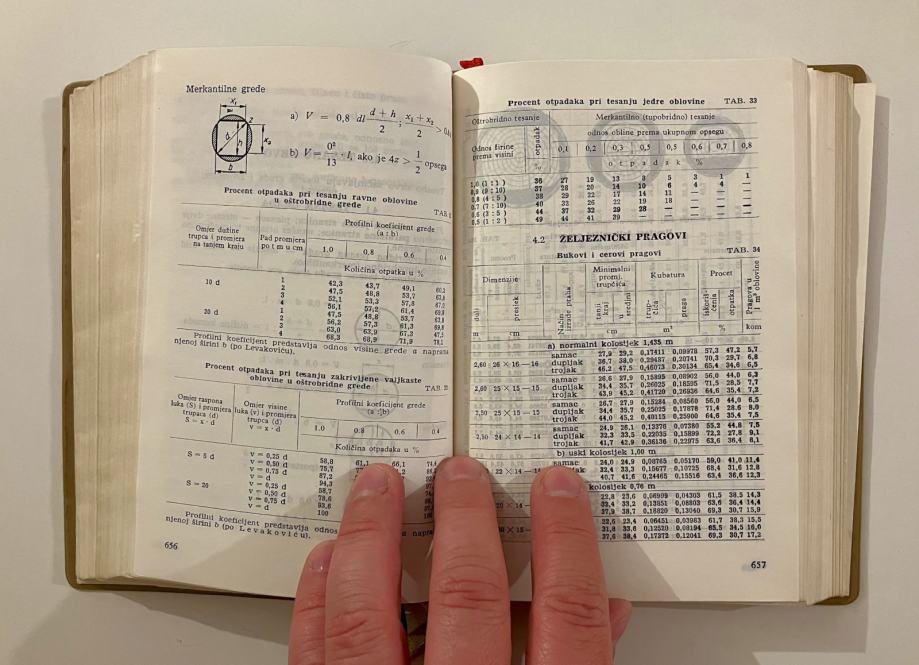 Merkantilne grede
a) V = 0,8 dl d + h / 2 ; x₁ + x₂ / 2 > 0,
b) V = l, ako je 4z > 1/2 opsega
Procent otpadaka pri tesanju ravne oblovine
u oštrobridno grede
TAB
Omjer dužine
trupca i promjera
na tanjem kraju
Pad promjera
po t m u cm
Profilni koeficijent grede
(a : b)
1,0 0,8 0,6 0,4
Količina otpatka u %
10 d
1 42,3 43,7 49,1 60,2
2 47,5 48,8 53,7 63,8
3 52,1 53,3 57,8 67,2
4 56,1 57,2 61,4 69,8
20 d
1 47,5 48,8 53,7 63,8
2 56,2 57,3 61,3 69,8
3 63,0 63,9 67,3 47,5
4 68,3 68,9 71,9 78,1
Profilni koeficijent predstavlja odnos visine grede a naprama
njenoj širini b (po Levakoviću).
Procent otpadaka pri tesanju zakrivljene valjkaste
oblovine u oštrobridne grede
TAB.
Omjer raspona
luka (S) i promjera
trupca (d)
S = x · d
Omjer visine
luka (v) i promjera
trupca (d)
v = x · d
Profilni koeficijent grede
(a : b)
1,0 0,8 0,6 0,4
Količina otpadaka u %
S = 5 d
v = 0,25 d 58,8 61,1 66,1 74,
v = 0,50 d 75,7
v = 0,75 d 87,2
v = d 94,3
S = 20
v = 0,25 d 58,7
v = 0,50 d 78,6
v = 0,75 d 93,6
v = d 100
Profilni koeficijent predstavlja odnos a napram
njenoj širini b (po Levakoviću).
656
Procent otpadaka pri tesanju jedre oblovine TAB. 33
Oštrobridno tesanje
Merkantilno (tupobridno) tesanje
Odnos širine
prema visini
otpadak
%
odnos obline prema ukupnom opsegu
0,1 0,2 0,3 0,5 0,6 0,7 0,8
otpadak %
1,0 (1 : 1) 36 27 19 13 8 5 3 1 1
0,9 (9 : 10) 37 28 20 14 10 6 4 4 —
0,8 (4 : 5) 38 29 22 17 14 11 — — —
0,7 (7 : 10) 40 32 26 22 19 18 — — —
0,6 (3 : 5) 44 37 32 29 28 — — — —
0,5 (1 : 2) 49 44 41 39 — — — — —
4.2 ŽELJEZNIČKI PRAGOVI
Bukovi i cerovi pragovi
TAB. 34
Dimenzije
presjek
m
cm
Način
izrade praha
Minimalni
promj.
trupčića
tanji
kraj
u
sredini
cm
Kubatura
trup-
čića
praga
m³
Procet
iskoriš-
ćenja
otpatka
%
Pragova u
1 m³ oblovine
kom
a) normalni kolosijek 1,435 m
samac 27,9 29,2 0,17411 0,09978 57,3 47,2 5,7
2,60 26 × 16 — 16 dupljak 36,7 38,0 0,29487 0,20741 70,3 29,7 6,8
trojak 46,2 47,5 0,46073 0,30134 65,4 34,6 6,5
samac 26,6 27,9 0,15895 0,08902 56,0 44,0 6,3
2,60 25 × 15 — 15 dupljak 34,4 35,7 0,26025 0,18595 71,5 28,5 7,7
trojak 43,9 45,2 0,41720 0,26936 64,6 35,4 7,2
samac 26,7 27,9 0,15284 0,08560 56,0 44,0 6,5
2,50 25 × 15 — 15 dupljak 34,4 35,7 0,25025 0,17878 71,4 28,6 8,0
trojak 44,0 45,2 0,40115 0,25900 64,6 35,4 7,5
samac 24,9 26,1 0,13376 0,07380 55,2 44,8 7,5
2,50 24 × 14 — 14 dupljak 32,3 33,5 0,22035 0,15899 72,2 27,8 9,1
trojak 41,7 42,9 0,36136 0,22975 63,6 36,4 8,1
b) uski kolosijek 1,00 m
samac 24,0 24,9 0,08765 0,05170 59,0 41,0 11,4
22 × 14 — 14 32,4 33,3 0,15677 0,10725 68,4 31,6 12,8
40,7 41,6 0,24465 0,15516 63,4 36,6 12,3
kolosijek 0,76 m
22,8 23,6 0,06999 0,04303 61,5 38,5 14,3
32,4 33,2 0,13851 0,08803 63,6 36,4 14,4
37,9 38,7 0,18820 0,13040 69,3 30,7 15,9
22,6 23,4 0,06451 0,03983 61,7 38,3 15,5
31,8 33,6 0,12520 0,08194 65,5 34,5 16,0
37,6 38,4 0,17372 0,12041 69,3 30,7 17,2
657